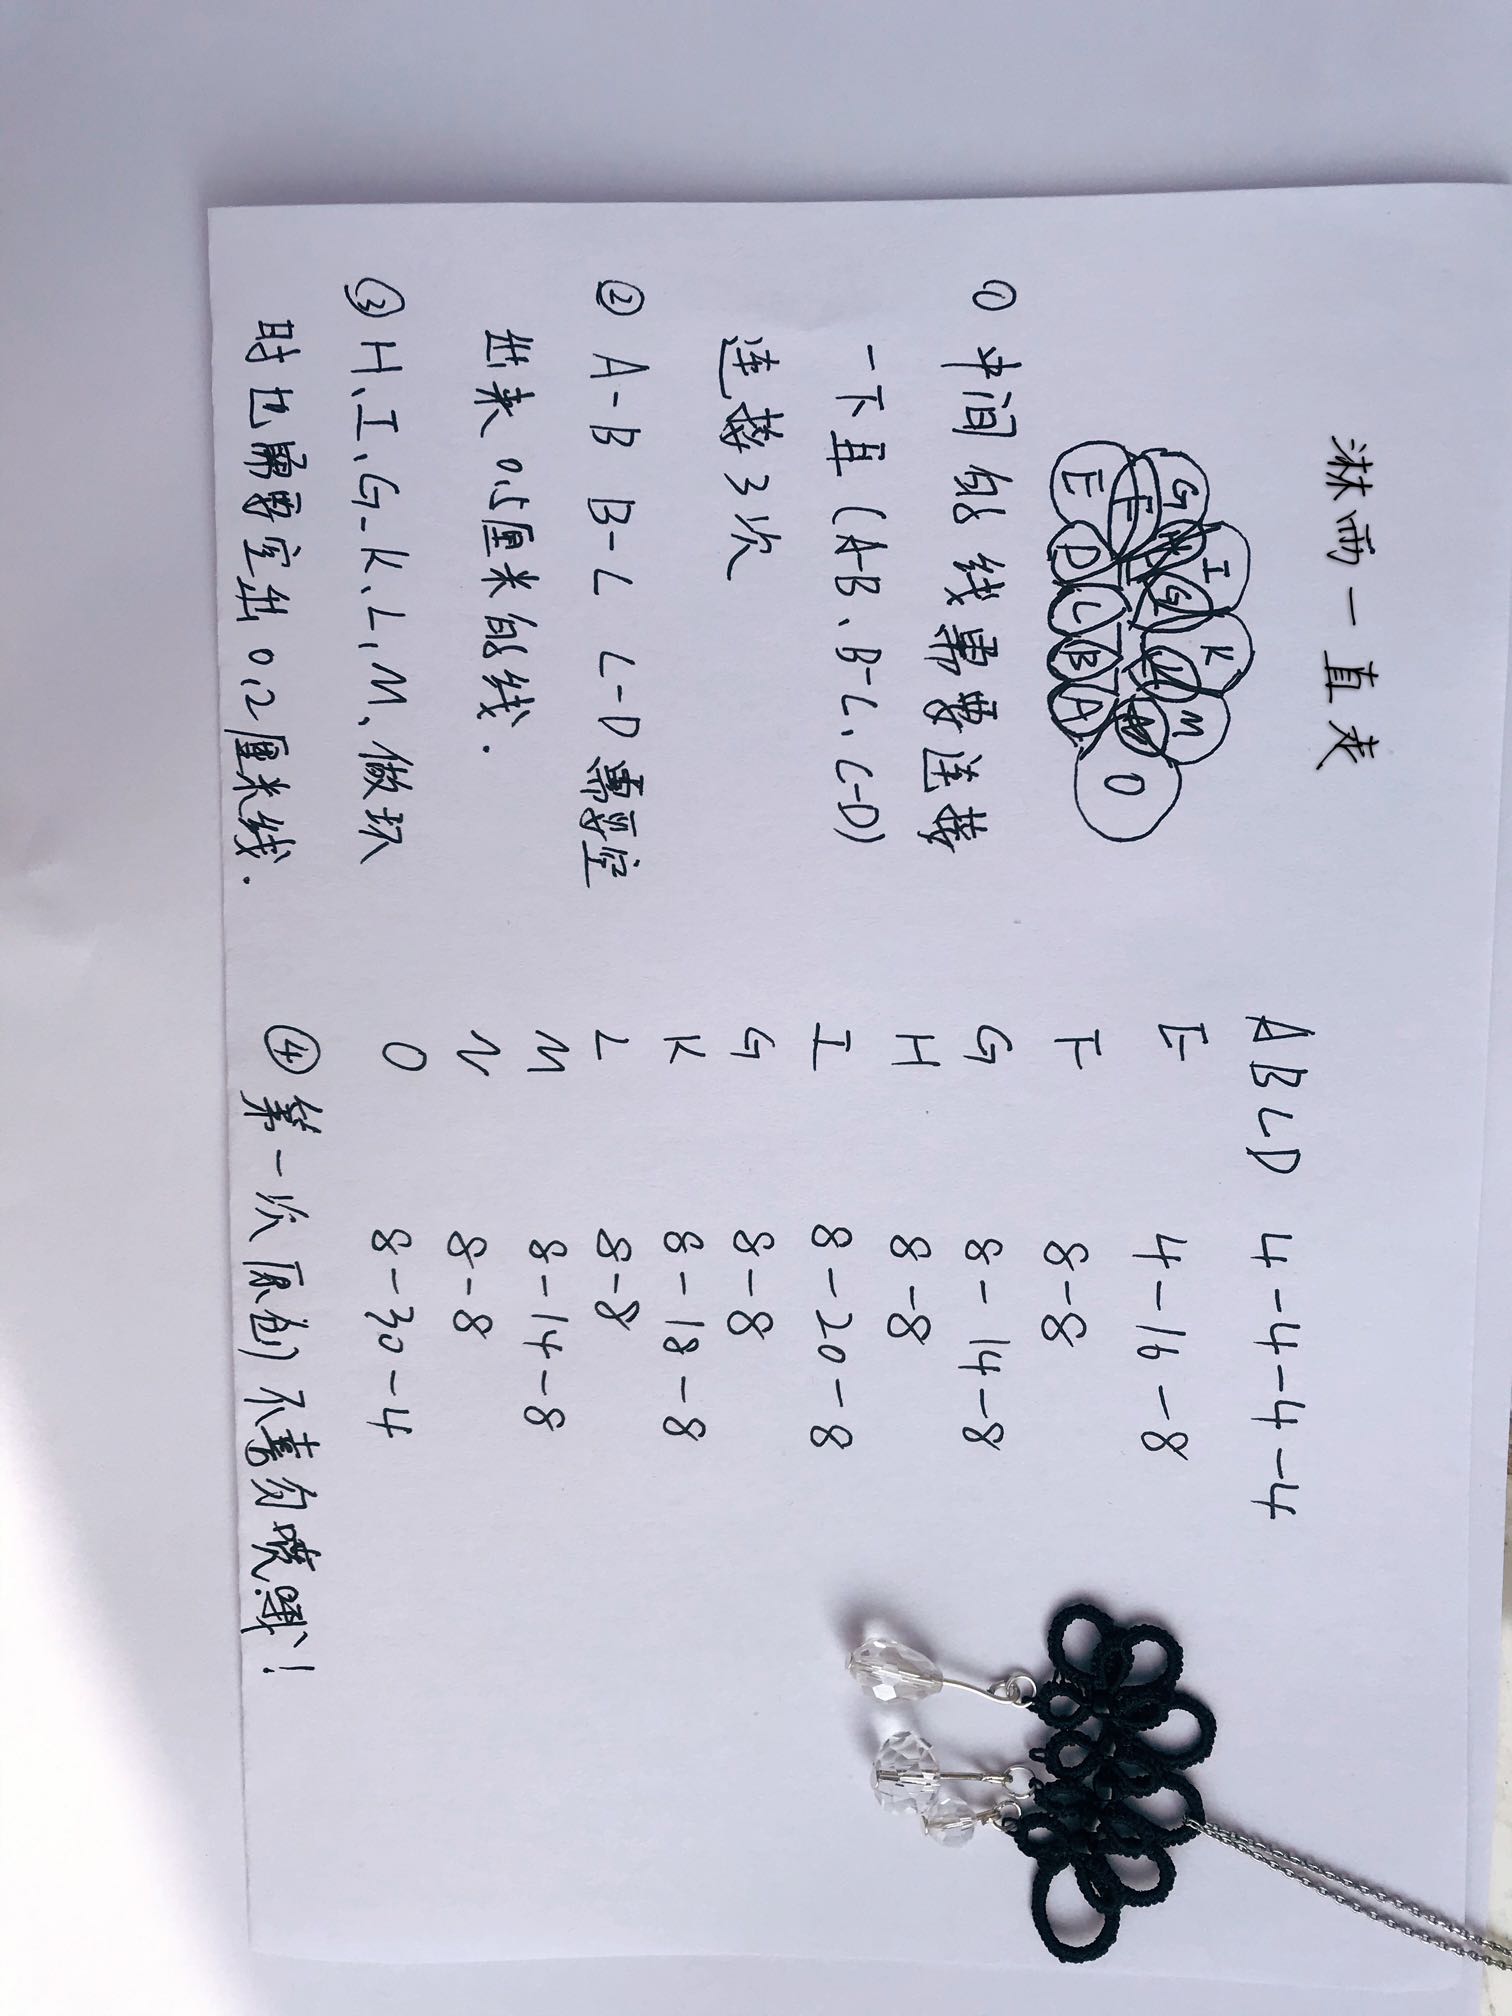 淋雨一直走
G I K M
F H G L N
E D L B A O
① 中间的线需要连接
一下且(A-B、B-L、C-D)
连接3次
② A-B B-L L-D 需要空
出来0.5厘米的线.
③ H、I、G-K、L、M、做环
时也需要空出0.2厘米线.
A B L D 4-4-4-4
E 4-16-8
F 8-8
G 8-14-8
H 8-8
I 8-20-8
G 8-8
K 8-18-8
L 8-8
M 8-14-8
N 8-8
O 8-30-4
④ 第一次原创)不喜勿喷哦!